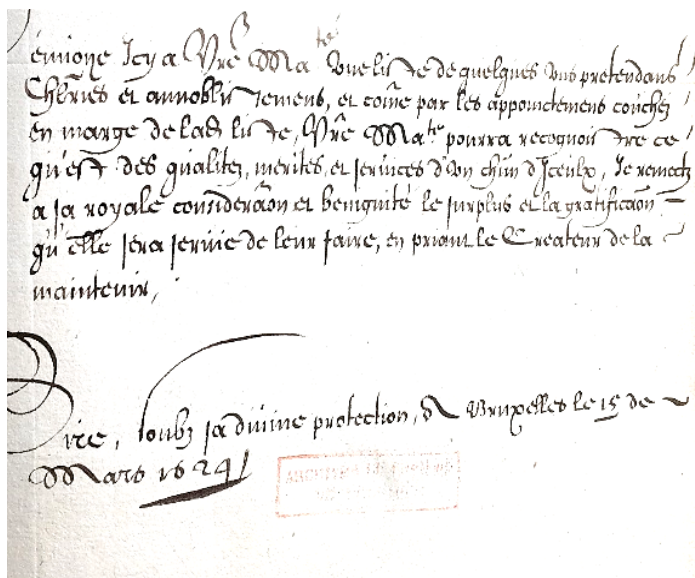 envoye Icy a Vre Ma.te une liste de quelques uns pretendans
Chlries et annoblissemens, et come par les appoinctemens couchez
en marge de lade liste, Vre Ma.te pourra recognoistre ce
qu'est des qualitez, merites, et services d'un chun d'Iceulx, Je remectz
a sa royale consideraon et benignité le surplus et la gratificaon
qu'elle sera servie de leur faire, en priant le Createur de la
maintenir,
Sire, soubz sa divine protection, de Bruxelles le 15 de
Mars 1624